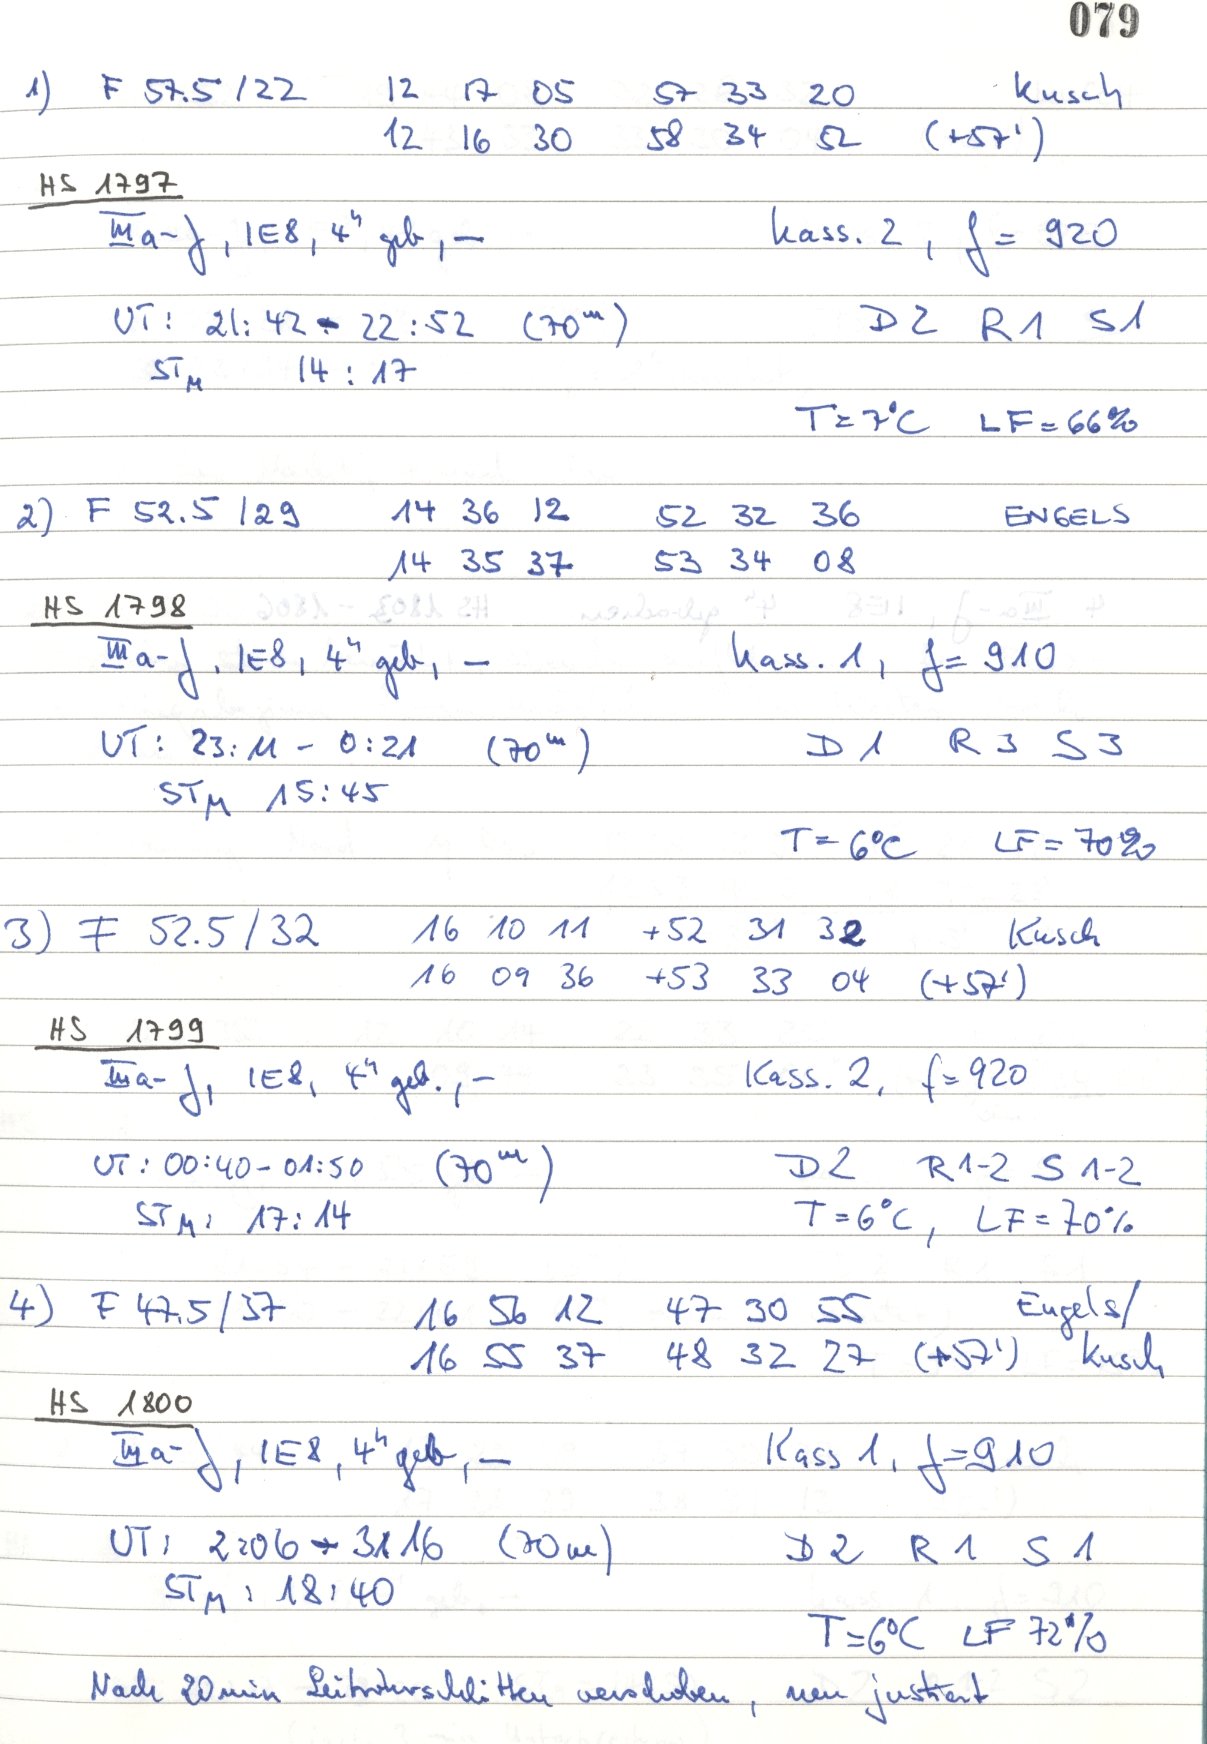 079
1) F 57.5/22 12 17 05 57 33 20 Kusch
12 16 30 58 34 52 (+57')
HS 1797
IIIa-J, IE8, 4h geb, — Kass. 2, f = 920
UT: 21:42 - 22:52 (70m) D2 R1 S1
STM 14:17
T=7°C LF=66%
2) F 52.5/29 14 36 12 52 32 36 ENGELS
14 35 37 53 34 08
HS 1798
IIIa-J, IE8, 4h geb, — Kass. 1, f = 910
UT: 23:11 - 0:21 (70m) D1 R3 S3
STM 15:45
T=6°C LF=70%
3) F 52.5/32 16 10 11 +52 31 32 Kusch
16 09 36 +53 33 04 (+57')
HS 1799
IIIa-J, IE8, 4h geb., — Kass. 2, f=920
UT: 00:40-01:50 (70m) D2 R1-2 S1-2
STM: 17:14 T=6°C, LF=70%
4) F 47.5/37 16 56 12 47 30 55 Engels/
16 55 37 48 32 27 (+57') Kusch
HS 1800
IIIa-J, IE8, 4h geb, — Kass 1, f=910
UT: 2:06 - 3:16 (70m) D2 R1 S1
STM: 18:40
T=6°C LF 72%
Nach 20min Leitrohrschlitten verschoben, neu justiert